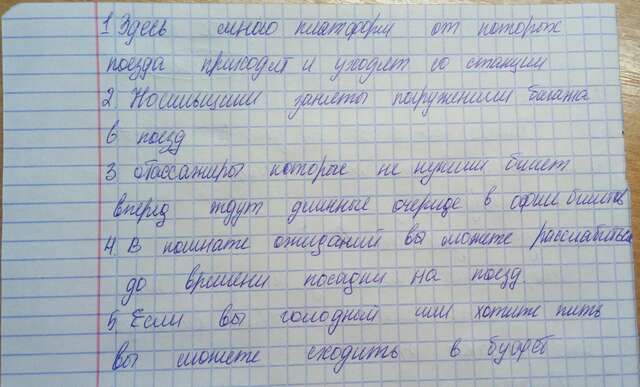 1 Здесь много платформ от которых
поезда приходят и уходят со станции
2. Носильщики заняты погружением багажа
в поезд
3 Пассажиры которые не купили билет
вперед ждут длинные очереде в офисе билетов
4. В комнате ожиданий вы можете расслабиться
до времени посадки на поезд.
5 Если вы голодный или хотите пить
вы можете сходить в буфет